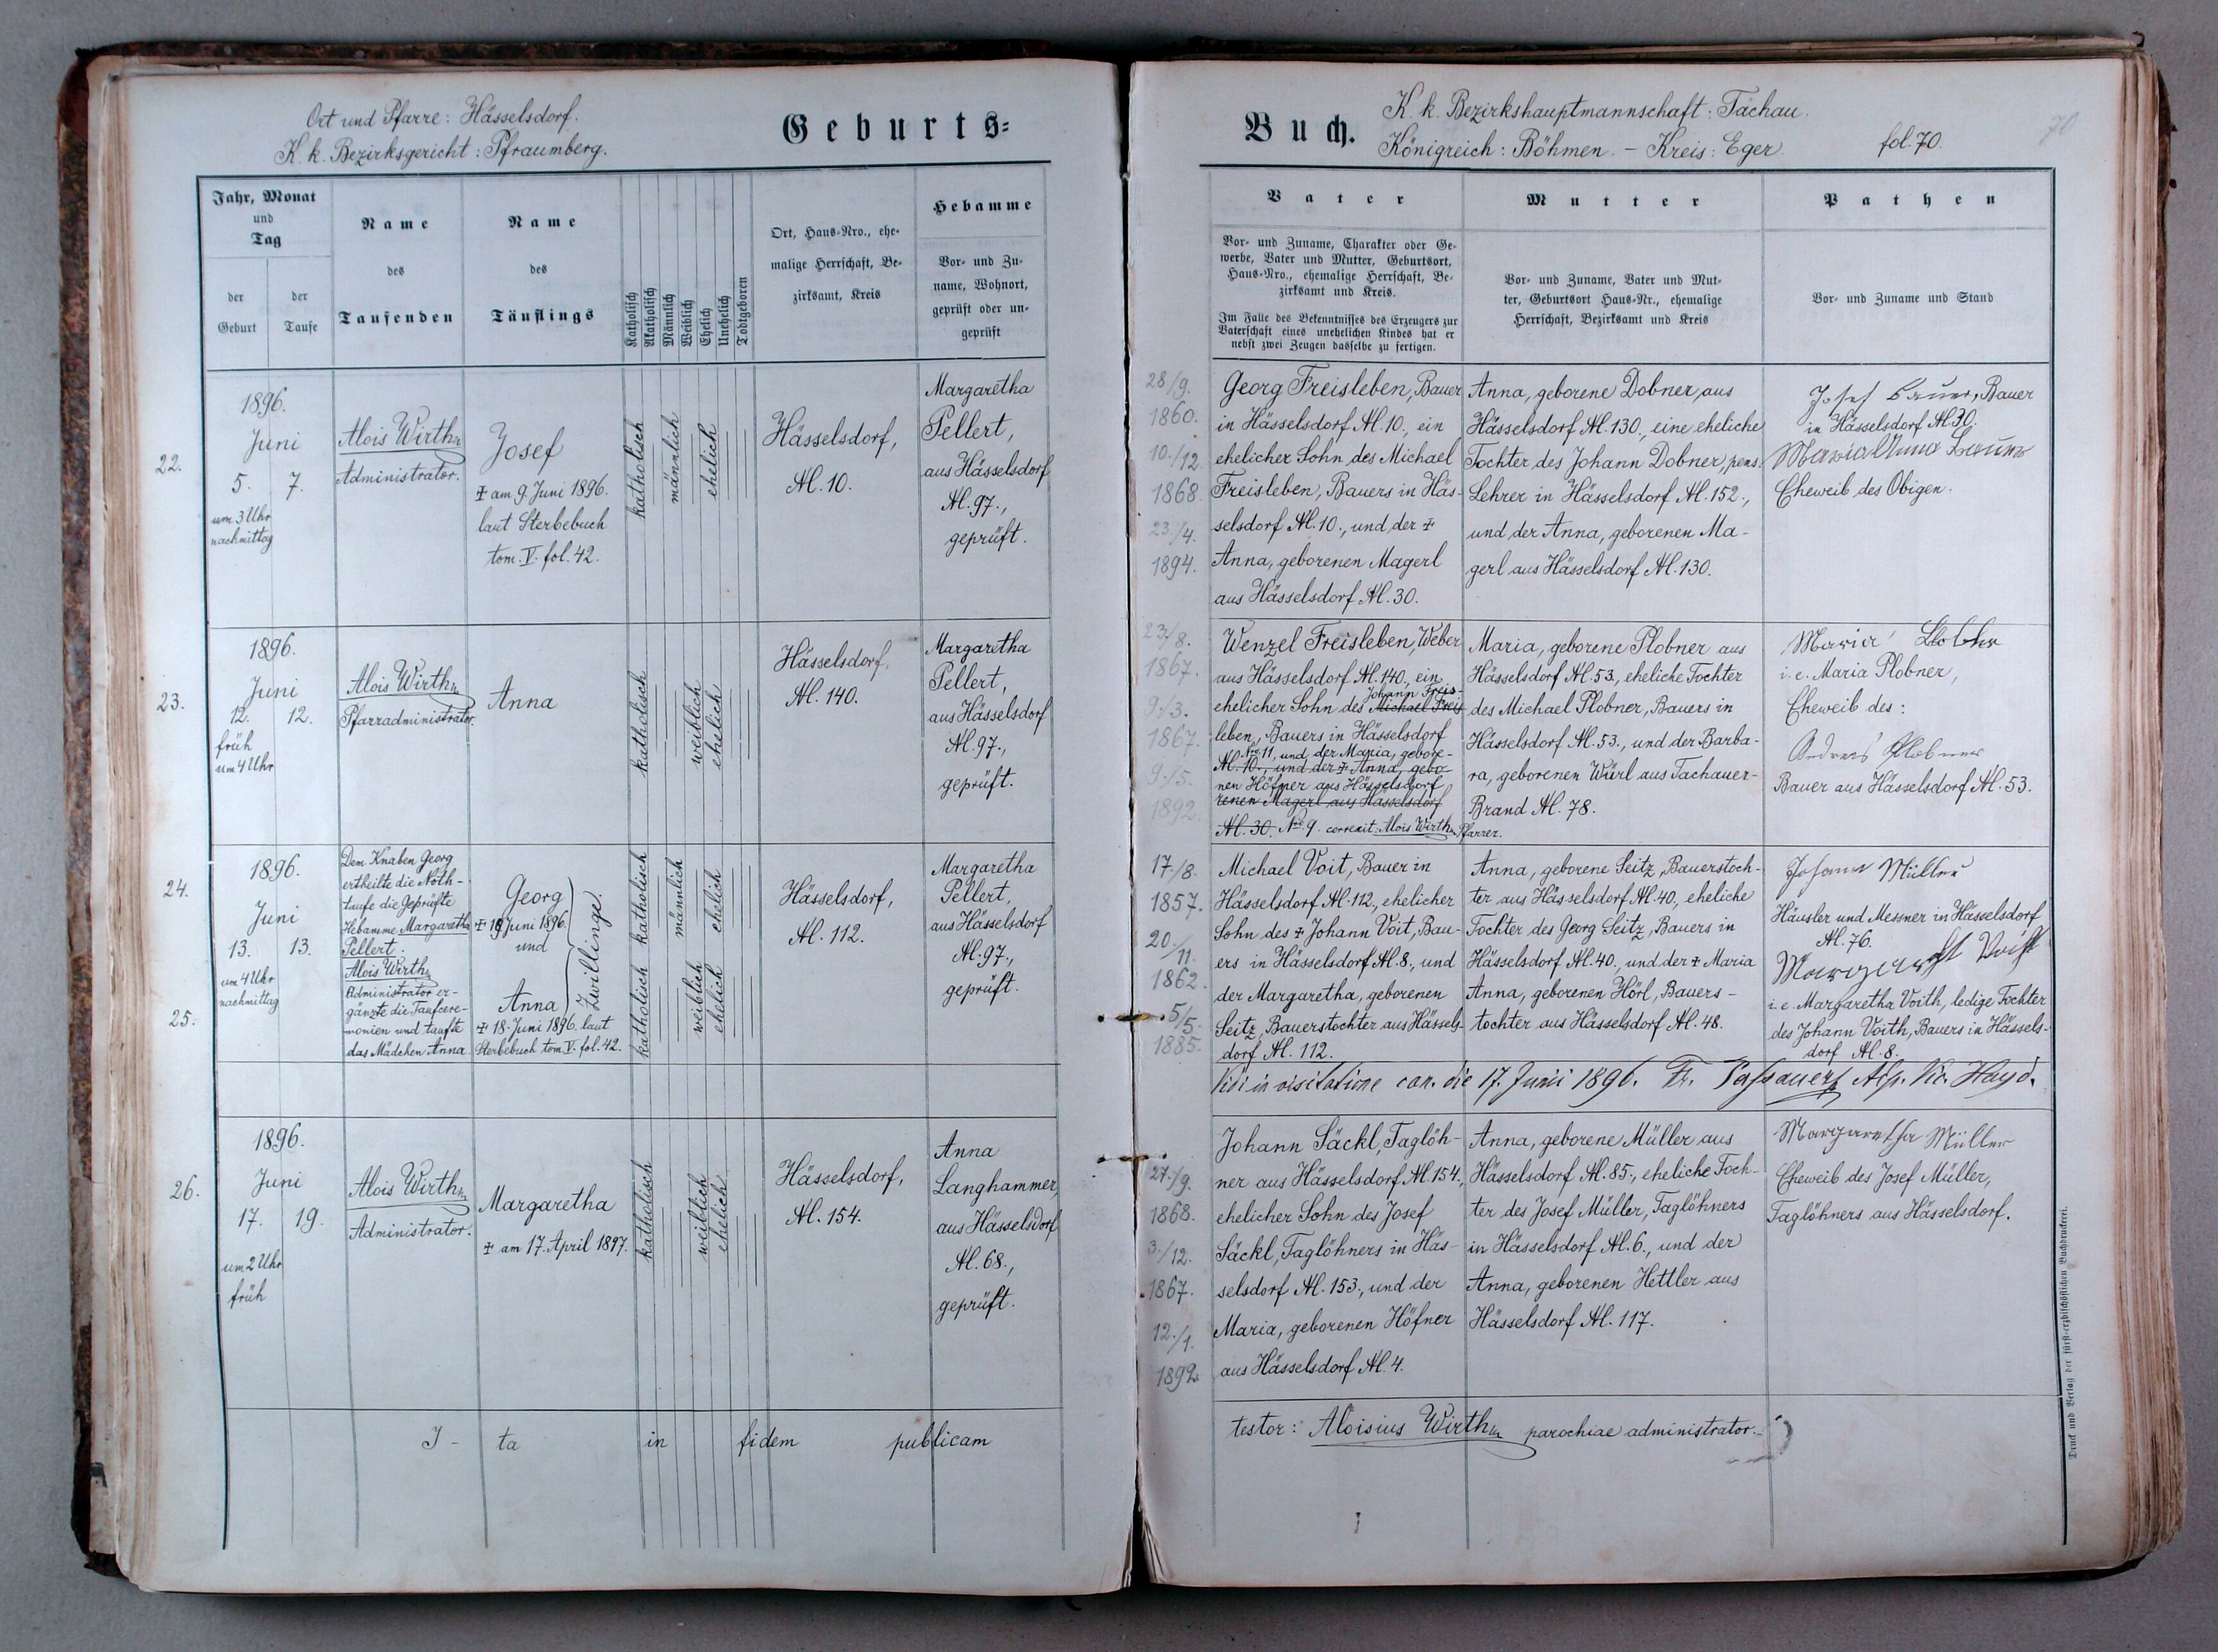 Ort und Pfarre: Hässelsdorf.
K. k. Bezirksgericht: Pfraumberg.
Geburts=
Jahr, Monat
und
Tag
der
Geburt
der
Taufe
Name
des
Taufenden
Name
des
Täuflings
Katholisch
Akatholisch
Männlich
Weiblich
Ehelich
Unehelich
Todtgeboren
Ort, Haus=Nro., ehe=
malige Herrschaft, Be=
zirksamt, Kreis
Hebamme
Vor= und Zu=
name, Wohnort,
geprüft oder un=
geprüft
22.
1896.
Juni
5. 7.
um 3 Uhr
nachmittag
Alois Wirth
Administrator.
Josef
‡ am 9. Juni 1896.
laut Sterbebuch
tom. V. fol. 42.
katholisch
männlich
ehelich
Hässelsdorf,
N. 10.
Margaretha
Pellert,
aus Hässelsdorf
N. 97.,
geprüft.
23.
1896.
Juni
12. 12.
früh
um 4 Uhr
Alois Wirth
Pfarradministrator.
Anna
katholisch
weiblich
ehelich
Hässelsdorf,
N. 140.
Margaretha
Pellert,
aus Hässelsdorf
N. 97.,
geprüft.
24.
25.
1896.
Juni
13. 13.
um 4 Uhr
nachmittag
Dem Knaben Georg
ertheilte die Noth-
taufe die geprüfte
Hebamme Margaretha
Pellert.
Alois Wirth
Administrator er-
gänzte die Taufcere-
monien und taufte
das Mädchen Anna.
Georg
‡ 18 Juni 1896.
und
Anna
Zwillinge.
‡ 18. Juni 1896, laut
Sterbebuch tom. V. fol. 42.
katholisch
männlich
ehelich
katholisch
weiblich
ehelich
Hässelsdorf,
N. 112.
Margaretha
Pellert,
aus Hässelsdorf
N. 97.,
geprüft.
26.
1896.
Juni
17. 19.
um 2 Uhr
früh
Alois Wirth
Administrator.
Margaretha
‡ am 17. April 1897.
katholisch
weiblich
ehelich
Hässelsdorf,
N. 154.
Anna
Langhammer,
aus Hässelsdorf
N. 68.,
geprüft.
I - ta in fidem publicam
Buch.
K. k. Bezirkshauptmannschaft: Tachau.
Königreich: Böhmen. - Kreis: Eger.
fol. 70.
70
Vater
Vor= und Zuname, Charakter oder Ge=
werbe, Vater und Mutter, Geburtsort,
Haus=Nro., ehemalige Herrschaft, Be=
zirksamt und Kreis.
Im Falle des Bekenntnisses des Erzeugers zur
Vaterschaft eines unehelichen Kindes hat er
nebst zwei Zeugen dasselbe zu fertigen.
Mutter
Vor= und Zuname, Vater und Mut=
ter, Geburtsort Haus=Nr., ehemalige
Herrschaft, Bezirksamt und Kreis
Pathen
Vor= und Zuname und Stand
28/9.
1860.
10./12
1868.
23./4.
1894.
Georg Freisleben, Bauer
in Hässelsdorf N. 10., ein
ehelicher Sohn des Michael
Freisleben, Bauers in Häs-
selsdorf N. 10., und der ‡
Anna, geborenen Magerl
aus Hässelsdorf N. 30.
Anna, geborene Dobner, aus
Hässelsdorf N. 130., eine eheliche
Tochter des Johann Dobner, pens.
Lehrer in Hässelsdorf N. 152.,
und der Anna, geborenen Ma-
gerl aus Hässelsdorf N. 130.
Josef Bauer, Bauer
in Hässelsdorf N. 30.
Maria Anna Bauer
Eheweib des Obigen.
23./8.
1867.
9./3.
1867.
9./5.
1892.
Wenzel Freisleben, Weber
aus Hässelsdorf N. 140., ein
Johann Freis-
ehelicher Sohn des Michael Freis
leben, Bauers in Hässelsdorf
Nro. 11, und der Maria, gebore-
N. 10., und der ‡ Anna, gebo-
nen Höfner aus Hässelsdorf
renen Magerl aus Hässelsdorf
N. 30. Nro. 9. correxit: Alois Wirth, Pfarrer.
Maria, geborene Plobner aus
Hässelsdorf N. 53., eheliche Tochter
des Michael Plobner, Bauers in
Hässelsdorf N. 53., und der Barba-
ra, geborenen Würl aus Tachauer-
Brand N. 78.
Maria
i. e. Maria Plobner,
Eheweib des:
Andreas Plobner
Bauer aus Hässelsdorf N. 53.
17./8.
1857.
20./11.
1862.
5/5.
1885.
Michael Voit, Bauer in
Hässelsdorf N. 112, ehelicher
Sohn des ‡ Johann Voit, Bau-
ers in Hässelsdorf N. 8., und
der Margaretha, geborenen
Seitz, Bauerstochter aus Hässels-
dorf N. 112.
Anna, geborene Seitz, Bauerstoch-
ter aus Hässelsdorf N. 40, eheliche
Tochter des Georg Seitz, Bauers in
Hässelsdorf N. 40., und der ‡ Maria
Anna, geborenen Hörl, Bauers-
tochter aus Hässelsdorf N. 48.
Johann Müller
Häusler und Messner in Hässelsdorf
N. 76.
Margareth Voith
i. e. Margaretha Voith, ledige Tochter
des Johann Voith, Bauers in Hässels-
dorf N. 8.
Vidi in visitatione can. die 17. Junii 1896. Fr. Passauer, Vic. Hayd.
27./9.
1868.
3./12.
1867.
12./1.
1892.
Johann Säckl, Taglöh-
ner aus Hässelsdorf N. 154.,
ehelicher Sohn des Josef
Säckl, Taglöhners in Häs-
selsdorf N. 153., und der
Maria, geborenen Höfner
aus Hässelsdorf N. 4.
Anna, geborene Müller aus
Hässelsdorf N. 85., eheliche Toch-
ter des Josef Müller, Taglöhners
in Hässelsdorf N. 6., und der
Anna, geborenen Hettler aus
Hässelsdorf N. 117.
Margaretha Müller
Eheweib des Josef Müller,
Taglöhners aus Hässelsdorf.
testor: Aloisius Wirth, parochiae administrator.
Druck und Verlag der fürst=erzbischöflichen Buchdruckerei.